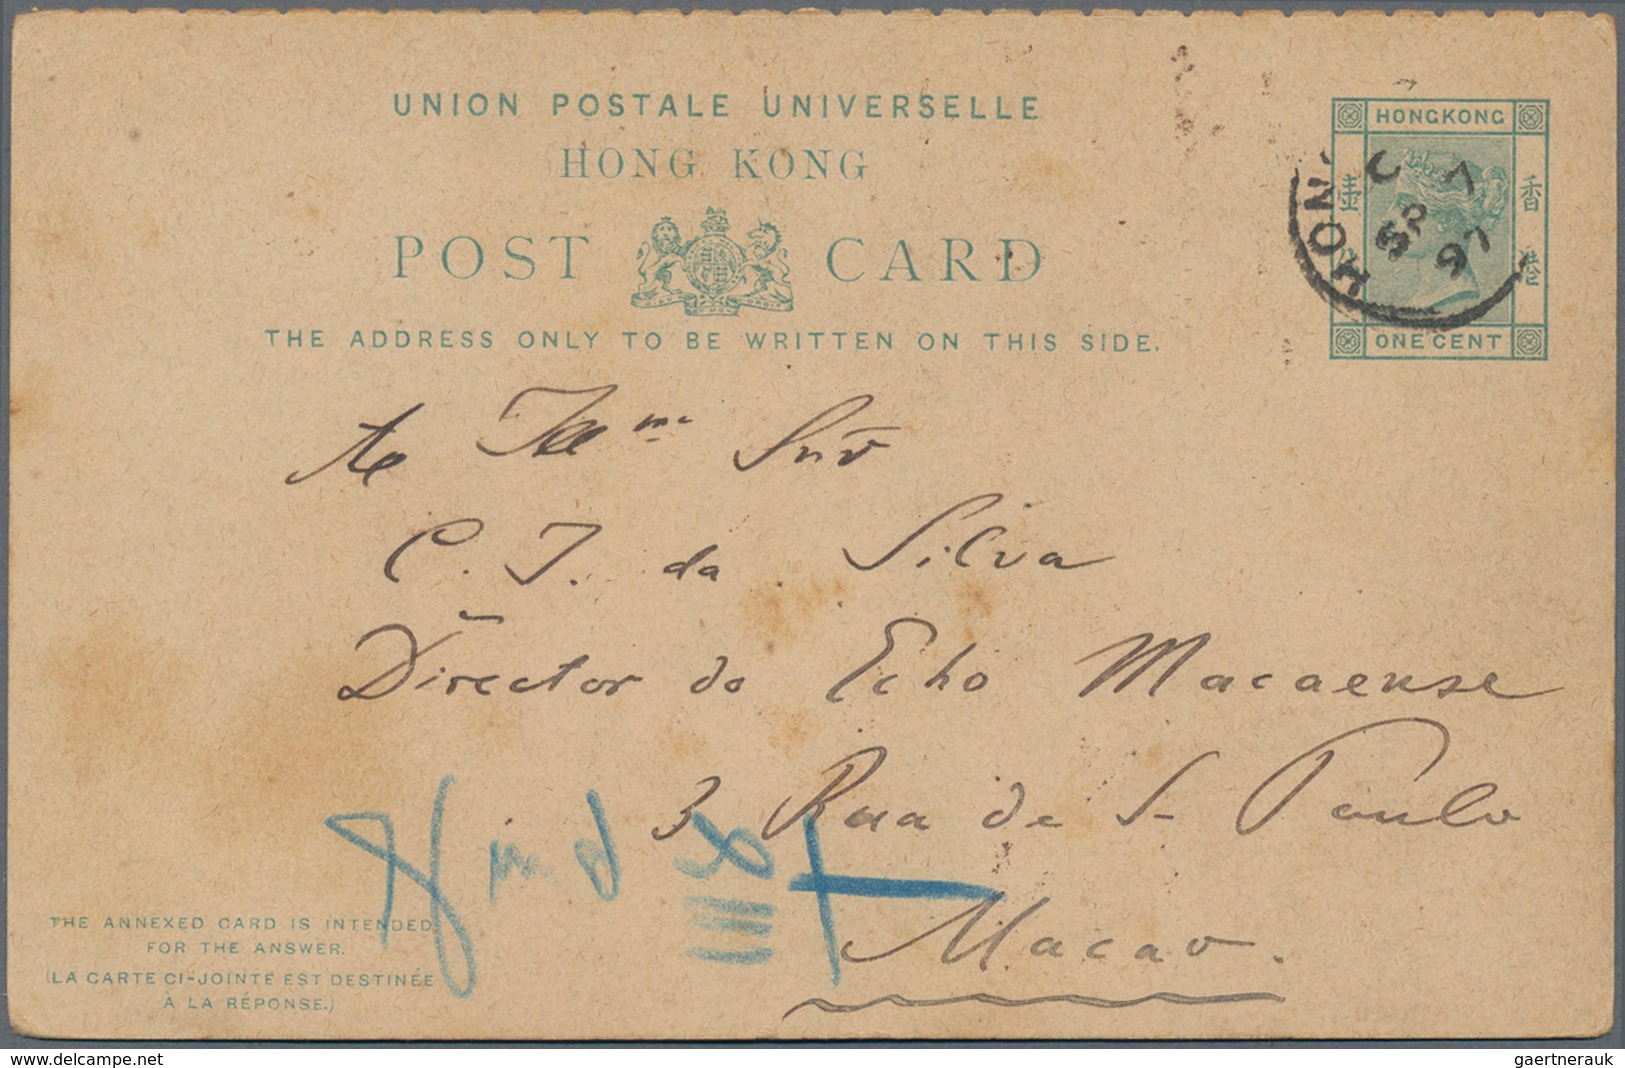 UNION POSTALE UNIVERSELLE
HONG KONG
POST CARD
THE ADDRESS ONLY TO BE WRITTEN ON THIS SIDE.
HONGKONG
壹
香港
ONE CENT
HON
C
SP 7
97
Ao Illmo Snr
C. J. da Silva
Director do Echo Macaense
3 Rua de S. Paulo
Macao.
THE ANNEXED CARD IS INTENDED
FOR THE ANSWER.
(LA CARTE CI-JOINTE EST DESTINÉE
À LA RÉPONSE.)
www.delcampe.net
gaertnerauk